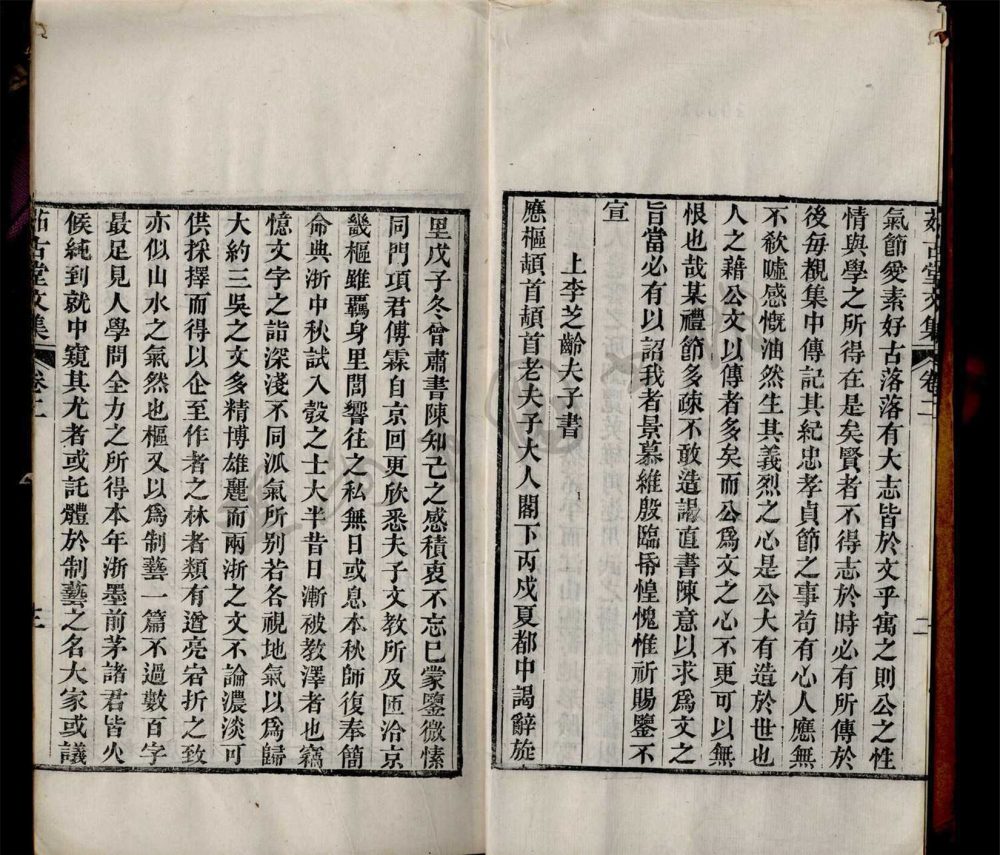 茹古堂文集 卷二 二
氣節愛素好古落落有大志皆於文乎寓之則公之性
情與學之所得在是矣賢者不得志於時必有所傳於
後每覩集中傳記其紀忠孝貞節之事苟有心人應無
不欷噓感慨油然生其義烈之心是公大有造於世也
人之藉公文以傳者多矣而公爲文之心不更可以無
恨也哉某禮節多疎不敢造謁直書陳意以求爲文之
旨當必有以詔我者景慕維殷臨楮惶愧惟祈賜鑒不
宣
上李芝齡夫子書
應樞頓首頓首老夫子大人閣下丙戌夏都中謁辭旋
里戊子冬曾肅書陳知己之感積衷不忘已蒙鑒微愫
同門項君傅霖自京回更欣悉夫子文教所及匝洽京
畿樞雖羈身里閭響往之私無日或息本秋師復奉簡
命典浙中秋試入彀之士大半昔日漸被教澤者也竊
憶文字之詣深淺不同派氣所別若各視地氣以爲歸
大約三吳之文多精博雄麗而兩浙之文不論濃淡可
供採擇而得以企至作者之林者類有遒亮宕折之致
亦似山水之氣然也樞又以爲制藝一篇不過數百字
最足見人學問全力之所得本年浙墨前茅諸君皆火
候純到就中窺其尤者或託體於制藝之名大家或議
茹古堂文集 卷二 三